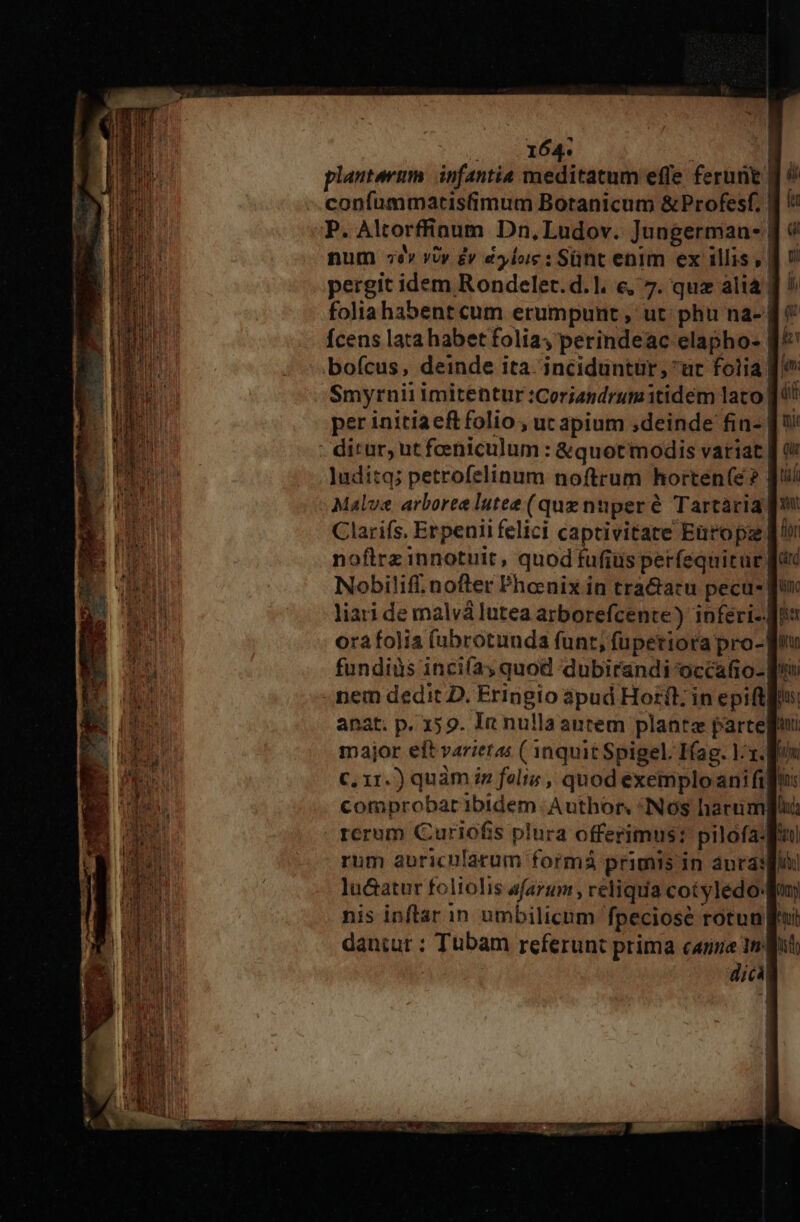 164.
plantarum infantia meditatum eſſe ferunt
conſummatisſimum Botanicum & Profesſ.
P. Altorffinum Dn. Ludov. Jungerman-
num τὸν νῦν ἐν ἁγίοις: Sunt enim ex illis,
pergit idem Rondelet. d. l. c. 7. quæ alia
folia habent cum erumpunt, ut phu na-
ſcens lata habet folia, perinde ac elapho-
boſcus, deinde ita inciduntur, ut folia
Smyrnii imitentur: Coriandrum itidem lato
per initia eſt folio, ut apium, deinde fin-
ditur, ut fœniculum: & quot modis variat
luditq; petroſelinum noſtrum hortenſe?
Malvæ arboreæ luteæ (quæ nuper è Tartaria
Clariſs. Erpenii felici captivitate Europæ
noſtræ innotuit, quod fuſius perſequitur
Nobiliſſ. noſter Phœnix in tractatu pecu-
liari de malvâ lutea arboreſcente) inferi-
ora folia ſubrotunda ſunt, ſuperiora pro-
fundiùs inciſa, quod dubitandi occaſio-
nem dedit D. Eringio apud Horſt. in epiſt.
anat. p. 159. In nulla autem plantæ parte
major eſt varietas (inquit Spigel. Iſag. l. 1.
c. 11.) quàm in foliis, quod exemplo aniſi
comprobat ibidem Author. Nos harum
rerum Curioſis plura offerimus: piloſa-
rum auricularum formâ primis in auras
luctatur foliolis aſarum, reliqua cotyledo-
nis inſtar in umbilicum ſpeciosè rotun-
dantur: Tubam referunt prima cannæ in-
dicæ